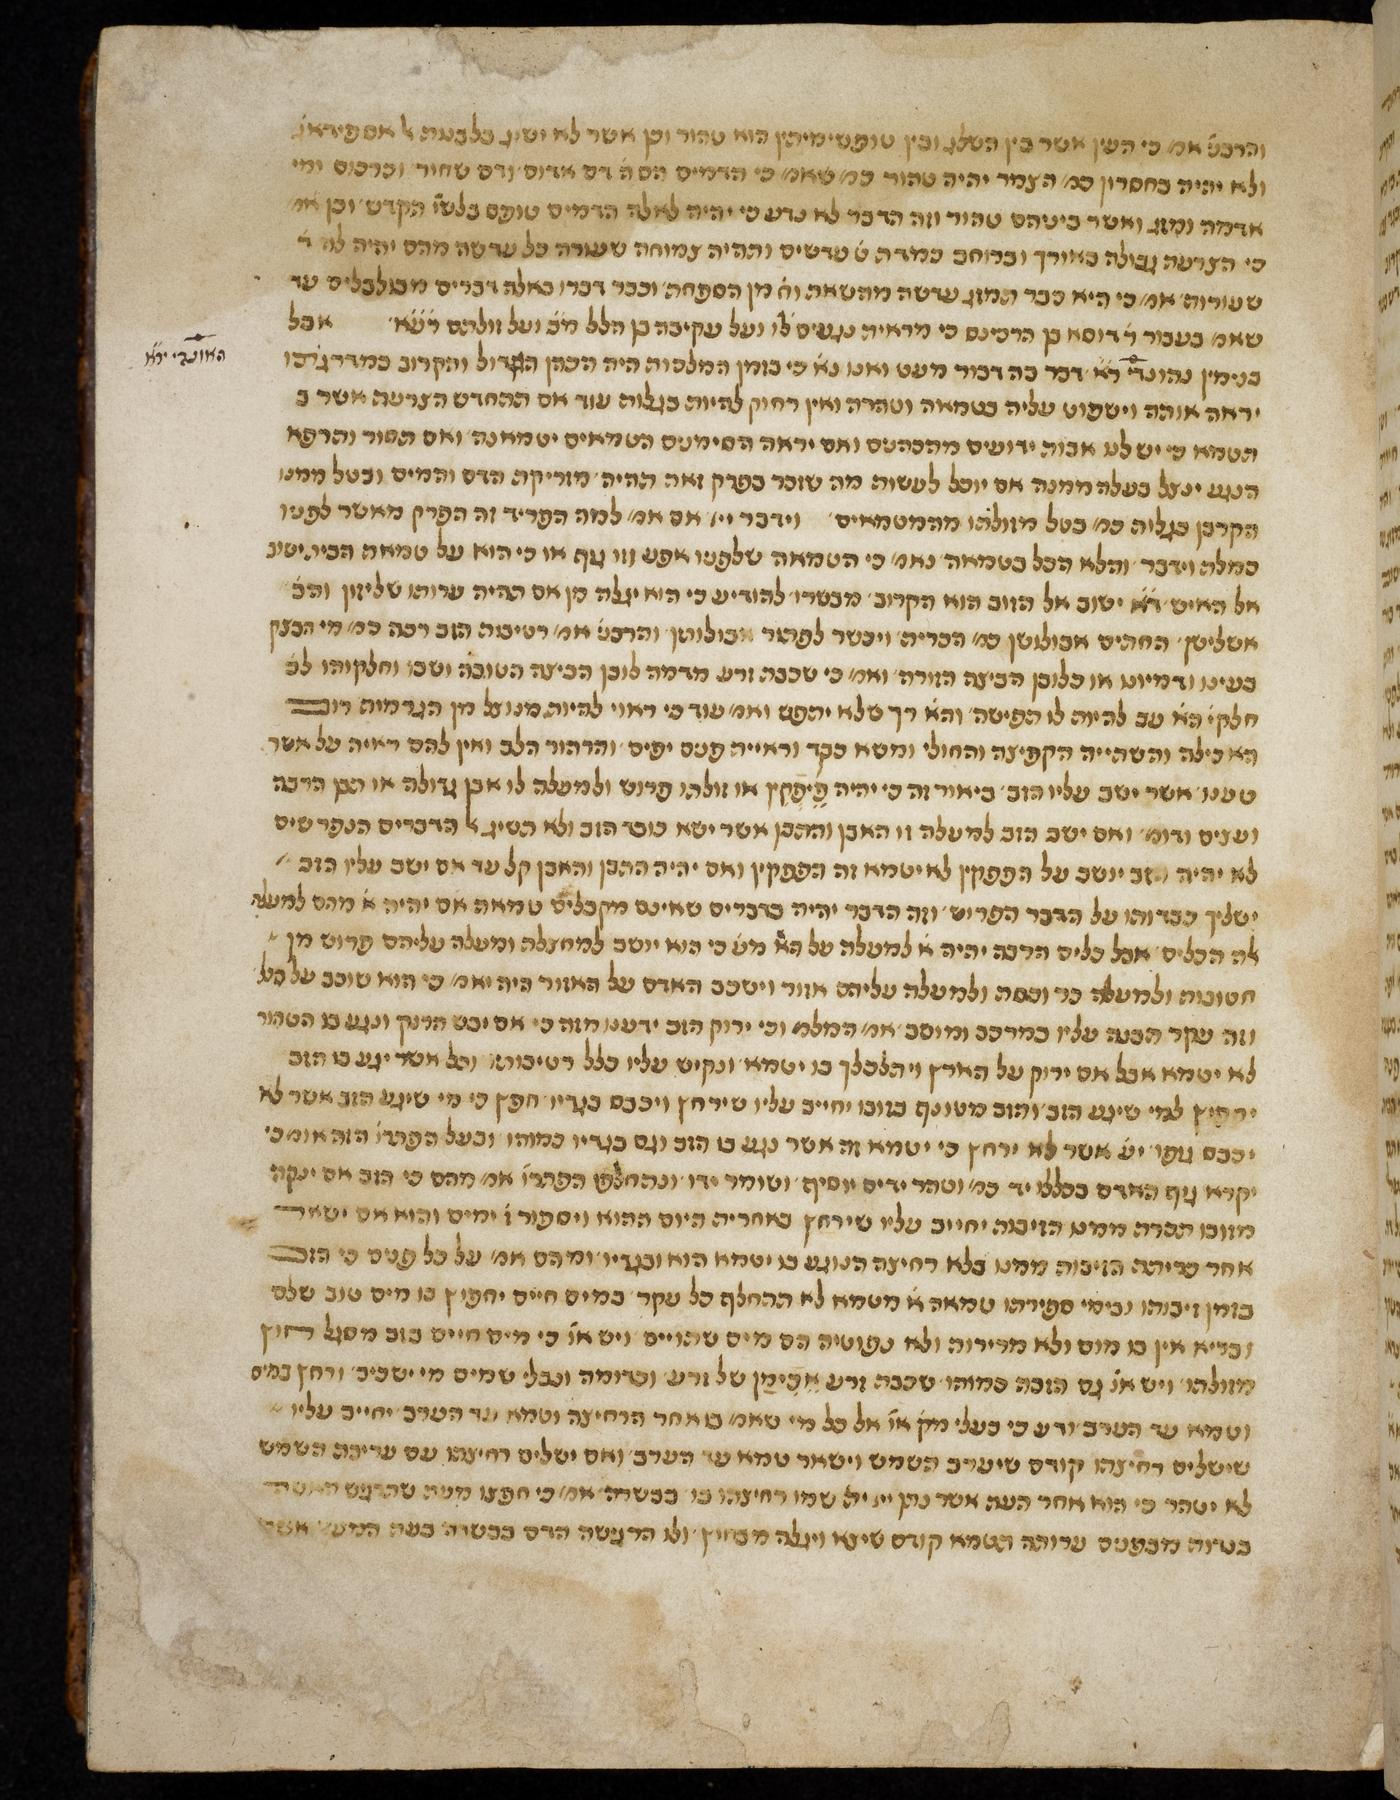 והרבני אמ׳ כי העין אשר בין השלג ובין טופשימיהין הוא טהור וכן אשר לא ישיג בלבנת
ולא יהיה בחסרון כמ׳ הצמר יהיה טהור כמ׳ שאמ׳ כי הדמים הם ה׳ דם אדום ודם שחור וכרכום ומי
אדמה ומזג ואשר ביניהם טהור וזה הדבר לא נדע כי יהיה לאלה הדמים טופס בלשו׳ הקדש וכן אמ׳
כי הצרעת גבולה באורך וברוחב כמדת ט׳ עדשים ותהיה צמוחה שעורה כל עדשה מהם יהיה לה ד׳
שעורות אמ׳ כי היא כבר המזג עדשה מהשאת וח׳ מן הספחת וכבר דברו באלה דברים מבולבלים עד
שאמ׳ בעבור ר׳ דוסא בן הרכינס כי מראית נגעים לו ועל עקיבה בן הלל מ״ב ועל זולתם רע״א אבל
בנימין נהונדי רי״א דבר בה דבור מעט ואנו נא׳ כי בזמן המלכות היה הכהן הגדול והקרוב במדרגתו
האונדי יר״א
יראה אותה וישפוט עליה בטמאה וטהרה ואין רחוק להיות בגלות עוד אם תתחדש הצרעת אשר ב
הטמא כי יש לנו אבות ידועים מהכהנים ואם יראה הסימנים הטמאים יטמאנה ואם תסור והרפא
הנגע ינצל בעלה ממנה אם יוכל לעשות מה שזכר בפרק זאת תהיה מזריקת הדם והמים ובטל ממנו
הקרבן בגלות כמ׳ בטל מזולתו מהמטמאים וידבר ייי׳ אם אמ׳ למה הפריד זה הפרק מאשר לפניו
במלת וידבר והלא הכל בטמאה נאמ׳ כי הטמאה שלפניו אפש׳ וזו גוף או כי הוא על טמאת הבית ישיב
אל האיש רי״א ישוב אל הזוב הוא הקרוב מבשרו להודיע כי הוא יגלה מן אם תהיה ערותו שליזון והב׳
אשליטן החתים אבולוטן כמ׳ הבריה ויכשר לפתור אבולותן והרבני אמ׳ רטיבות הזב רכה כמ׳ מי הבצק
בעינו ודמיונו או כלובן הביצה הזורה ואמ׳ כי שכבת זרע מדמה לובן הביצה הטובה ושבו וחלקוהו לב׳
חלקי׳ הא׳ עב להיות לו תפישה והא׳ רך שלא יתפש ואמ׳ עוד כי ראוי להיות מנוצל מן הגרמות רוב
האכילה והשתייה הקפיצה והחולי ומשא כבד וראיית פנים יפים והרהור הלב ואין להם ראיה על אשר
טענו אשר ישב עליו הזב ביאור זה כי יהיה פיפקין או זולתו פרוש ולמעלה לו אבן גדולה או תבן הרבה
ועצים ודומ׳ ואם ישב הזב למעלה זו האבן והתבן אשר ישא כובד הזב ולא תשיג הדברים הנפרשים
לא יהיה הזב יושב על הפפקין לא יטמא זה הפפקין ואם יהיה התבן והאבן קל עד אם ישב עליו הזב
ישליך כבדותו על הדבר הפרוש וזה הדבר יהיה בדברים שאינם מקבלים טמאה אם יהיה א׳ מהם למעלה
אלה הכלים אבל כלים הרבה יהיה א׳ למעלה על הא׳ מע׳ כי הוא יושב למחצלה ומעלה עליהם פרוש מן
חטובות ולמעלה כר וכסת ולמעלה עליהם אזור וישכב האדם על האזור היה יאמ׳ כי הוא שוכב על כל
וזה עקר הבנה עליו כמרכב ומוסב אמ׳ המלמ׳ וכי ירוק הזב ידענו מזה כי אם יבש הרוק ונגע בו הטהור
לא יטמא אבל אם ירוק על הארץ ויתלכלך בו יטמא ונקיש עליו כלל רטיבותו וכל אשר יגע בו הזב
ירחיץ למי שיגע הזב והזב מטונף בזובו יחייב עליו שירחץ ויכבס בגדיו חפץ כי מי שיגע הזב אשר לא
יכבס גופו יע׳ אשר לא ירחץ כי יטמא זה אשר נגע בו הזב וגם בגדיו כמוהו ובעל הפתרו׳ הזה אומ׳ כי
יקרא גוף האדם בכללו יד כמ׳ וטהר ידים יוסיף ושומר ידו ונתחלפו הפתרו׳ אמ׳ מהם כי הזב אם ינקה
מזובו תכרת ממנו הזיבות יחייב עליו שירחץ באחרית היום ההוא ויספור ז׳ ימים והוא אם ישאר
אחר כריתת הזיבות ממנו בלא רחיצה הנוגע בו יטמא הוא ובגדיו ומהם אמ׳ על כל פנים כי הזב
בזמן זיבותו ובימי ספירתו טמאה א׳ מטמא לא תתחלף כל עקר במים חיים יחפוץ בו מים טוב שלם
ובריא אין בו מום ולא מרירות ולא נפוטיה הם מים שתויים ויש או׳ כי מים חיים בזב מסגל רחוץ
מזולתו ויש או׳ גם הזבה כמוהו שכבת זרע אבימן של זרע וכדומה ונבלי שמים מי ישכיב ורחץ במים
וטמא עד הערב ודע כי בעלי מק׳ או׳ אל כל מי שאמ׳ בו אחר הרחיצה וטמא עד הערב יחייב עליו
שישלים רחיצתו קודם שיערב השמש וישאר טמא עד הערב ואם ישלים רחיצתו עם עריבת השמש
לא יטהר כי הוא אחר העת אשר נתן ית׳ שמו רחיצתו בו בבשרה אמ׳ כי חפצו מעת שתרגיש האשה
בצאת מבפנים ערותה תטמא קודם שיצא ויגלה מבחוץ ולו הרגישה הדם בבשרה בעת המעט אשר